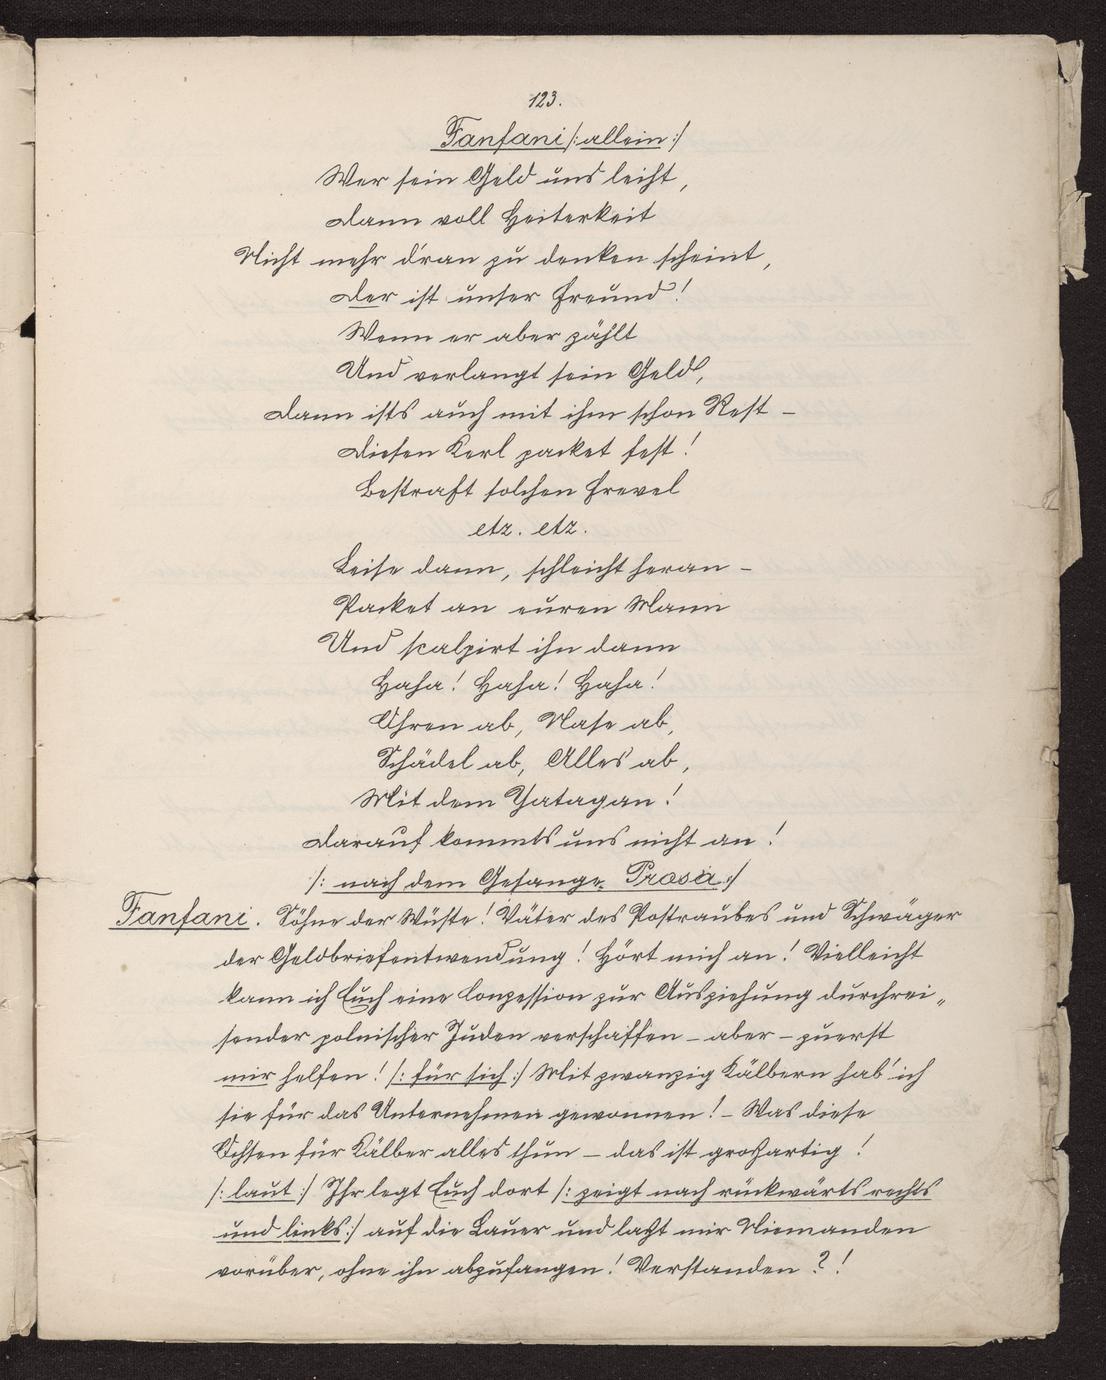 123.
Fanfani /: allein :/
Wer sein Geld uns leiht,
Dann voll Heiterkeit
Nicht mehr d'ran zu denken scheint,
Der ist unser Freund!
Wenn er aber zählt
Und verlangt sein Geld,
Dann ists auch mit ihm schon Rest –
Diesen Kerl packet fest!
Bestraft solchen Frevel
etz. etz.
Leise dann, schleicht heran –
Packet an euren Mann
Und scalpirt ihn dann
Haha! Haha! Haha!
Ohren ab, Nase ab,
Schädel ab, Alles ab,
Mit dem Yatagan!
Darauf kommts uns nicht an!
/: nach dem Gesange Prosa :/
Fanfani. Söhne der Wüste! Väter des Postraubes und Schwäger
der Geldbriefentwendung! Hört mich an! Vielleicht
kann ich Euch eine Conzession zur Ausziehung durchrei„
sender polnischer Juden verschaffen – aber – zuerst
mir helfen! /: für sich :/ Mit zwanzig Kälbern hab' ich
sie für das Unternehmen gewonnen! – Was diese
Ochsen für Kälber alles thun – das ist großartig!
/: laut :/ Ihr legt Euch dort /: zeigt nach rückwärts rechts
und links :/ auf die Lauer und laßt mir Niemanden
vorüber, ohne ihn abzufangen! Verstanden?!